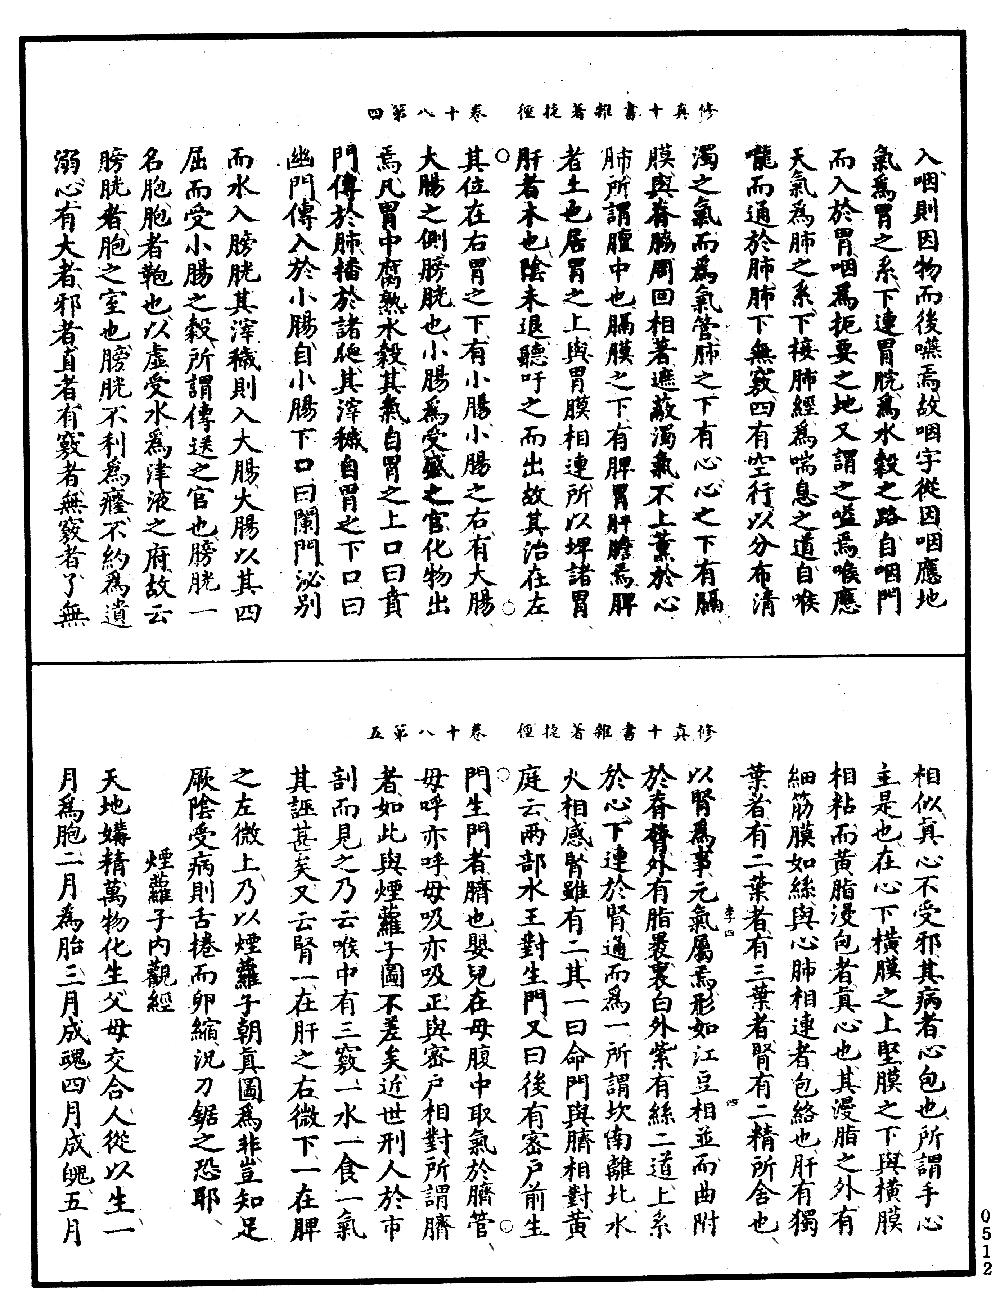 修真十書雜著捷徑　卷十八第四
入咽則因物而後嚥焉故咽字從因咽應地
氣爲胃之系下連胃脘爲水穀之路自咽門
而入於胃咽爲扼要之地又謂之嗌焉喉應
天氣爲肺之系下接肺經爲喘息之道自喉
嚨而通於肺肺下無竅四有空行以分布清
濁之氣而爲氣管肺之下有心心之下有膈
膜與脊脇周回相著遮蔽濁氣不上薰於心
肺所謂膻中也膈膜之下有脾胃肝膽焉脾
者土也居胃之上與胃膜相連所以埤諸胃
肝者木也陰未退聽吁之而出故其治在左
其位在右胃之下有小腸小腸之右有大腸
大腸之側膀胱也小腸爲受盛之官化物出
焉凡胃中腐熟水穀其氣自胃之上口曰賁
門傳於肺播於諸脉其滓穢自胃之下口曰
幽門傳入於小腸自小腸下口曰闌門泌別
而水入膀胱其滓穢則入大腸大腸以其四
屈而受小腸之穀所謂傳送之官也膀胱一
名胞胞者鞄也以虛受水爲津液之府故云
膀胱者胞之室也膀胱不利爲癃不約爲遺
溺心有大者邪者直者有竅者無竅者了無
修真十書雜著捷徑　卷十八第五
相似真心不受邪其病者心包也所謂手心
主是也在心下橫膜之上堅膜之下與橫膜
相粘而黃脂漫包者真心也其漫脂之外有
細筋膜如絲與心肺相連者包絡也肝有獨
葉者有二葉者有三葉者腎有二精所舍也
李四
四
以腎爲事元氣屬焉形如江豆相並而曲附
於脊膂外有脂裹裏白外紫有絲二道上系
於心下連於腎通而爲一所謂坎南離北水
火相感腎雖有二其一曰命門與臍相對黃
庭云兩部水王對生門又曰後有密戶前生
門生門者臍也嬰兒在母腹中取氣於臍管
母呼亦呼母吸亦吸正與密戶相對所謂臍
者如此與煙蘿子圖不差矣近世刑人於市
剖而見之乃云喉中有三竅一水一食一氣
其誣甚矣又云腎一在肝之右微下一在脾
之左微上乃以煙蘿子朝真圖爲非豈知足
厥陰受病則舌捲而卵縮況刀鋸之恐耶
煙蘿子內觀經
天地媾精萬物化生父母交合人從以生一
月爲胞二月為胎三月成魂四月成魄五月
0512